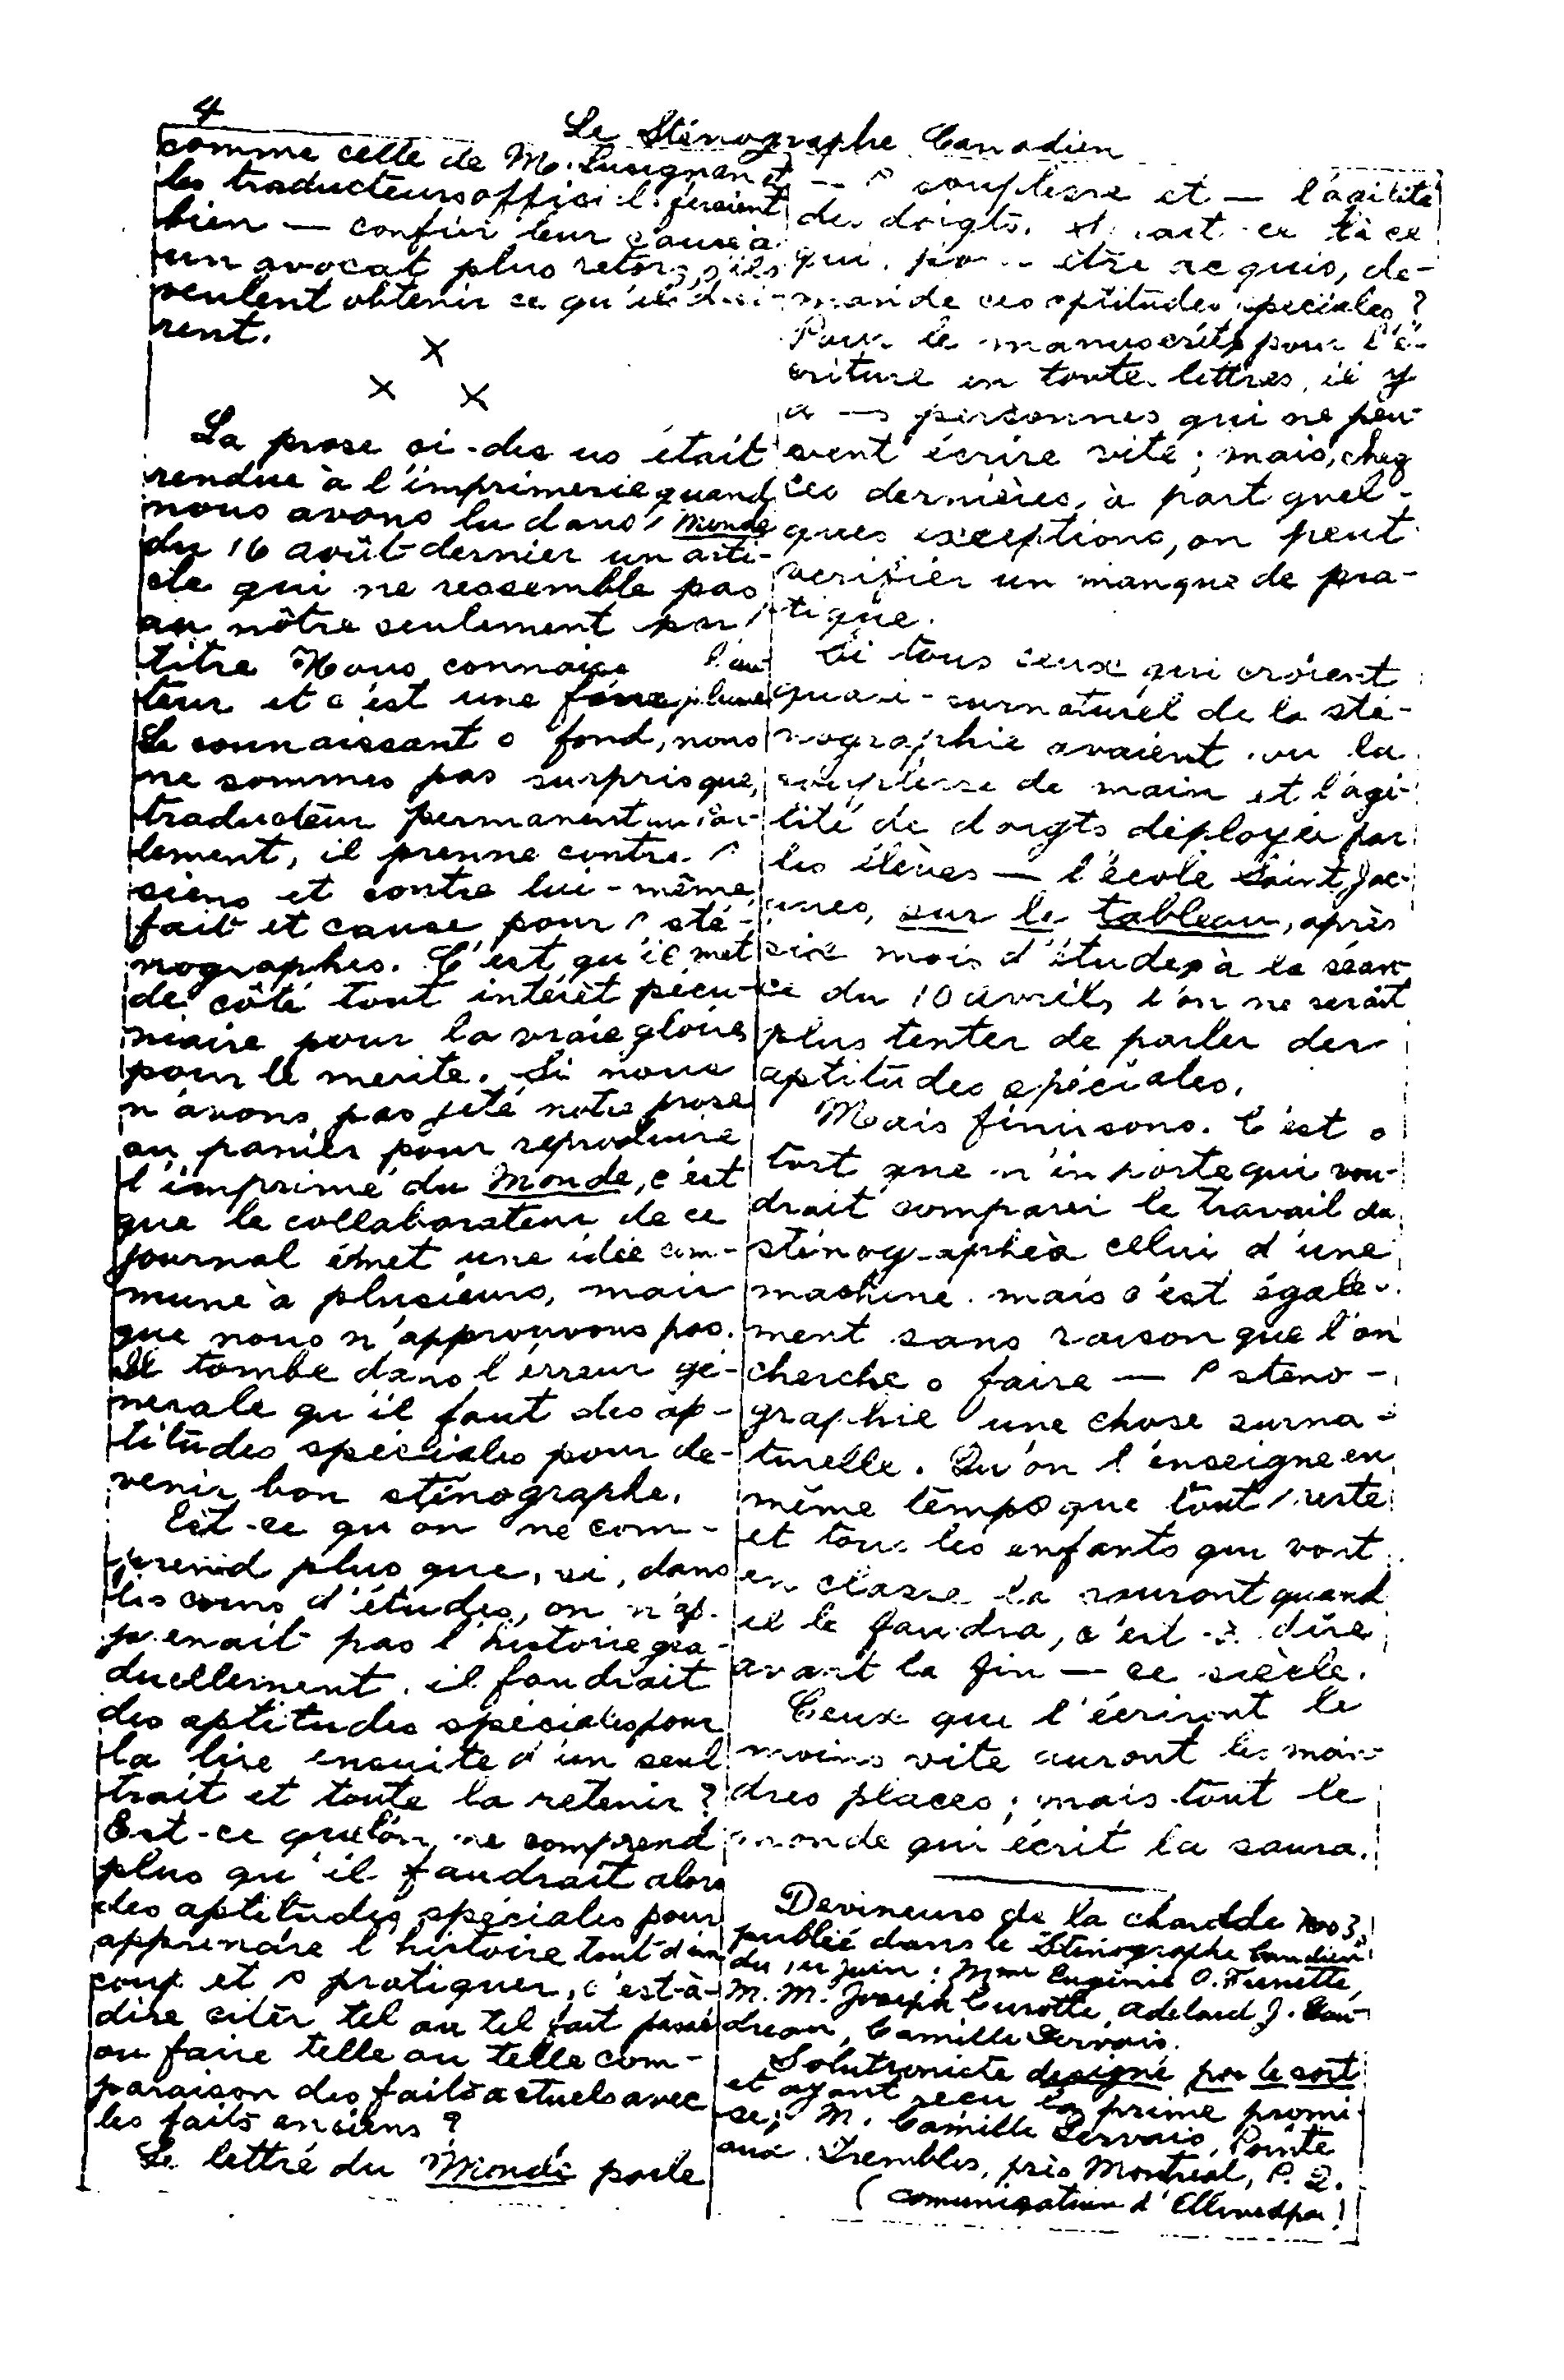 4
Le Sténographe Canadien
comme celle de M. Lusignan et
les traducteurs feraient
bien — confier leur cause à
un avocat plus retors, s'ils
veulent obtenir ce qu'ils dési-
rent.
X
X X
La prose ci-dessus était
rendue à l'imprimerie quand
nous avons lu dans Monde
du 16 août dernier un arti-
cle qui ne ressemble pas
au nôtre seulement par
titre Nous l'au-
teur et c'est une plume
Le connaissant o fond, nous
ne sommes pas surpris que,
traducteur permanent au par-
lement, il prenne contre
siens et contre lui-même
fait et cause pour sté-
nographes. C'est qu'il met
de côté tout intérêt pécu-
niaire pour la vraie gloire
pour le merite. Si nous
n'avons pas jeté notre prose
au panier pour reproduire
l'imprimé du Monde, c'est
que le collaborateur de ce
journal émet une idée com-
mune à plusieurs, mais
que nous n'approuvons pas.
Il tombe dans l'érreur gé-
nerale qu'il faut des ap-
titudes spéciales pour de-
venir bon sténographe.
Est-ce qu'on ne com-
prend plus que, si, dans
les cours d'études, on n'ap-
prenait pas l'histoire gra-
duellement, il faudrait
des aptitudes spéciales pour
la lire ensuite d'un seul
trait et toute la retenir ?
Est-ce que l'on ne comprend
plus qu'il faudrait alors
des aptitudes spéciales pour
apprendre l'histoire tout d'un
coup et pratiquer, c'est-à-
dire citer tel ou tel fait passé
ou faire telle ou telle com-
paraison des faits actuels avec
les faits anciens ?
Le lettré du Monde parle
— souplesse et — l'agilité
des doigts. ce
qui, être acquis, de-
mande ces aptitudes speciales ?
Pour le manuscrit, pour l'é-
criture en toute lettres, il y
a — personnes qui ne peu-
vent écrire vite ; mais, chez
ces dernières, à part quel-
ques exceptions, on peut
verifier un manque de pra-
tique.
Si tous ceux qui croient
quasi-surnaturel de la sté-
nographie avaient vu la
souplesse de main et l'agi-
lité de doigts déployée par
les élèves — l'école Saint, Jac-
ques, sur le tableau, après
six mois d'études, à la séan-
ce du 10 avril, l'on ne serait
plus tenter de parler des
aptitudes spéciales.
Mais finissons. C'est o
tort que n'importe qui vou-
drait comparer le travail du
sténographe à celui d'une
machine. mais c'est égale-
ment sans raison que l'on
cherche o faire — sténo-
graphie une chose surna-
turelle. Qu'on l'enseigne en
même temps que tout reste
et tous les enfants qui vont
en classe la sauront quand
il le faudra, c'est-à-dire
avant la fin — ce siècle.
Ceux que l'écriront le
moins vite auront les moin-
dres places ; mais tout le
monde qui écrit la saura.
Devineurs de la charade No 3,
publiée dans le Sténographe Canadien
du 1er juin : Mme Eugénie O.
M. M. Joseph Curotte, Adelard J. Bou-
dreau, Camille Servais.
Solutioniste designé par le sort
et ayant reçu la prime promi-
se; M. Camille Servais, Pointe
aux Trembles, près Montreal, P. Q.
(comunication d'